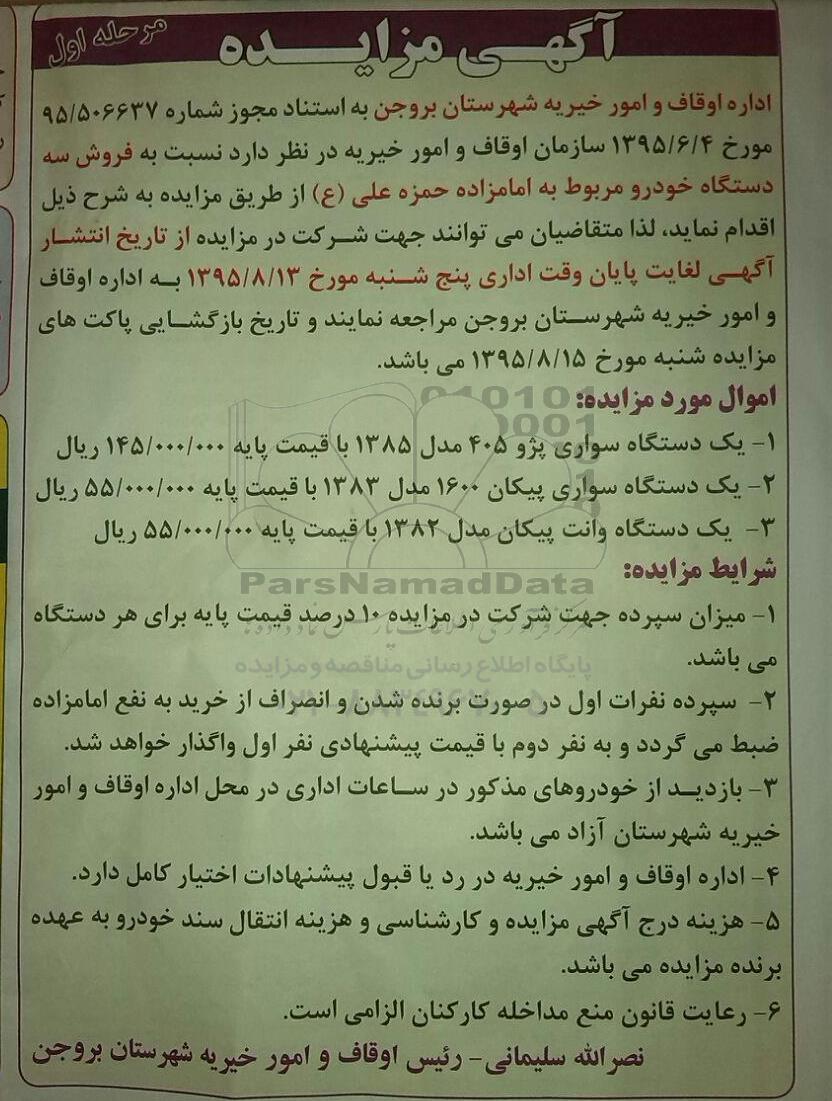 آگهی مزایده
مرحله اول
اداره اوقاف و امور خیریه شهرستان بروجن به استناد مجوز شماره ۹۵/۵۰۶۶۳۷
مورخ ۱۳۹۵/۶/۴ سازمان اوقاف و امور خیریه در نظر دارد نسبت به فروش سه
دستگاه خودرو مربوط به امامزاده حمزه علی (ع) از طریق مزایده به شرح ذیل
اقدام نماید، لذا متقاضیان می توانند جهت شرکت در مزایده از تاریخ انتشار
آگهی لغایت پایان وقت اداری پنج شنبه مورخ ۱۳۹۵/۸/۱۳ به اداره اوقاف
و امور خیریه شهرستان بروجن مراجعه نمایند و تاریخ بازگشایی پاکت های
مزایده شنبه مورخ ۱۳۹۵/۸/۱۵ می باشد.
اموال مورد مزایده:
۱- یک دستگاه سواری پژو ۴۰۵ مدل ۱۳۸۵ با قیمت پایه ۱۴۵/۰۰۰/۰۰۰ ریال
۲- یک دستگاه سواری پیکان ۱۶۰۰ مدل ۱۳۸۳ با قیمت پایه ۵۵/۰۰۰/۰۰۰ ریال
۳- یک دستگاه وانت پیکان مدل ۱۳۸۲ با قیمت پایه ۵۵/۰۰۰/۰۰۰ ریال
ParsNamadData
شرایط مزایده:
۱- میزان سپرده جهت شرکت در مزایده ۱۰ درصد قیمت پایه برای هر دستگاه
می باشد.
پایگاه اطلاع رسانی مناقصه و مزایده
۲- سپرده نفرات اول در صورت برنده شدن و انصراف از خرید به نفع امامزاده
ضبط می گردد و به نفر دوم با قیمت پیشنهادی نفر اول واگذار خواهد شد.
۳- بازدید از خودروهای مذکور در ساعات اداری در محل اداره اوقاف و امور
خیریه شهرستان آزاد می باشد.
۴- اداره اوقاف و امور خیریه در رد یا قبول پیشنهادات اختیار کامل دارد.
۵- هزینه درج آگهی مزایده و کارشناسی و هزینه انتقال سند خودرو به عهده
برنده مزایده می باشد.
۶- رعایت قانون منع مداخله کارکنان الزامی است.
نصرالله سلیمانی- رئیس اوقاف و امور خیریه شهرستان بروجن